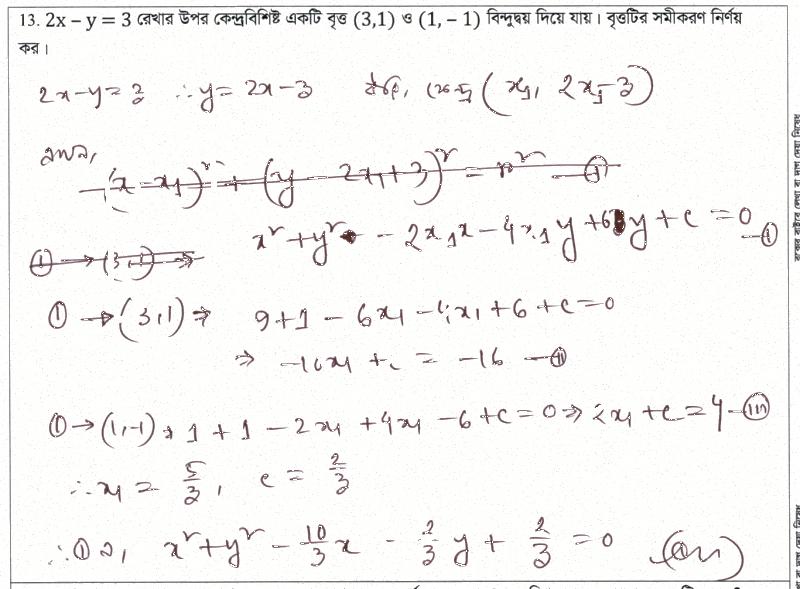 13. 2x – y = 3 রেখার উপর কেন্দ্রবিশিষ্ট একটি বৃত্ত (3,1) ও (1, – 1) বিন্দুদ্বয় দিয়ে যায়। বৃত্তটির সমীকরণ নির্ণয়
কর।
2x-y=3 ∴y= 2x-3 ধরি, কেন্দ্র (x₁, 2x₁-3)
(x-x₁)² + (y-2x₁+3)² = r² —①
x²+y² - 2x₁x - 4x₁y + 6y + c = 0 —①
① → (3,1) ⇒
① → (3,1) ⇒ 9+1 - 6x₁ - 4x₁ + 6 + c = 0
⇒ -10x₁ + c = -16 —⑪
① → (1,-1) ⇒ 1+1 - 2x₁ + 4x₁ - 6 + c = 0 ⇒ 2x₁ + c = 4 —(iii)
∴ x₁ = 5/3, c = 2/3
∴ ① এ, x²+y² - 10/3 x - 2/3 y + 2/3 = 0 (Ans)